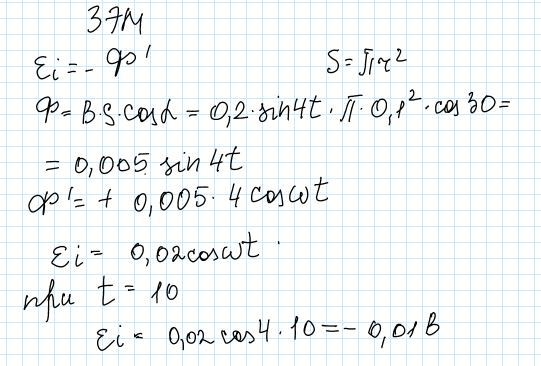 ЗЭМИ
εi = - Ф'
S = πr²
Ф = B·S·cosα = 0,2·sin4t·π·0,1²·cos30 =
= 0,005 sin 4t
Ф' = + 0,005·4 cosωt
εi = 0,02cosωt.
при t = 10
εi = 0,02 cos4·10 = - 0,01 В